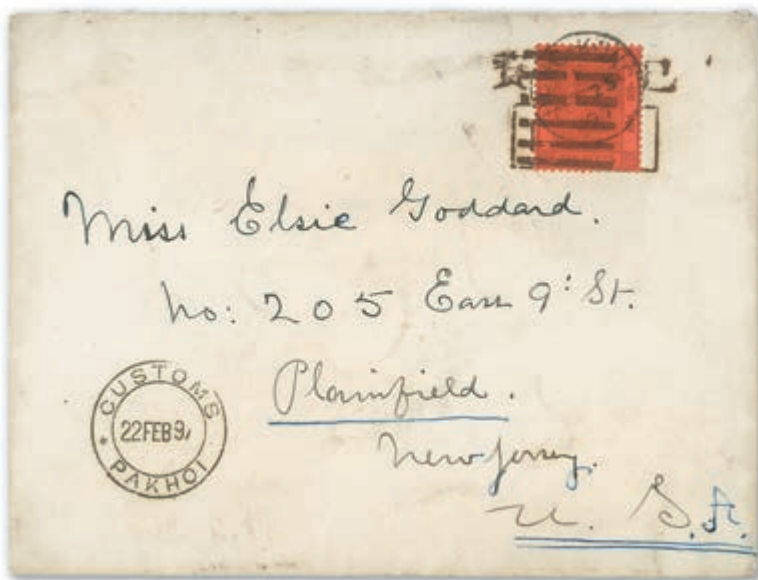 Miss Elsie Goddard.
No: 205 East 9: St.
Plainfield.
New Jersey.
U. S. A.
CUSTOMS
22 FEB 9
PAKHOI